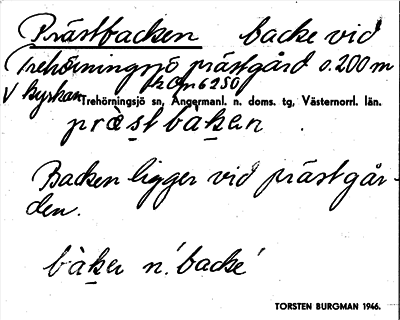 Prästbacken backe vid
Trehörningsjö prästgård o. 200 m
V kyrkan
Trehörningsjö sn, Ångermanl. n. doms. tg, Västernorrl. län.
præ̀stbàkan .
Backen ligger vid prästgår-
den.
bàker n. 'backe'
TORSTEN BURGMAN 1946.